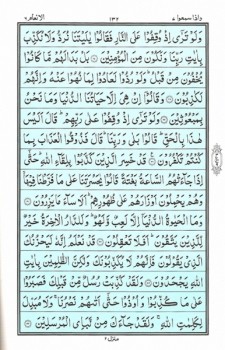 واذا سمعوا ٧ ١٣٢ الانعام ٦
وَلَوْ تَرٰٓى اِذْ وُقِفُوْا عَلَى النَّارِ فَقَالُوْا يٰلَيْتَنَا نُرَدُّ وَلَا نُكَذِّبَ
بِاٰيٰتِ رَبِّنَا وَنَكُوْنَ مِنَ الْمُؤْمِنِيْنَ ۝ بَلْ بَدَا لَهُمْ مَّا كَانُوْا
يُخْفُوْنَ مِنْ قَبْلُ ؕ وَلَوْ رُدُّوْا لَعَادُوْا لِمَا نُهُوْا عَنْهُ وَاِنَّهُمْ
لَكٰذِبُوْنَ ۝ وَقَالُوْٓا اِنْ هِيَ اِلَّا حَيَاتُنَا الدُّنْيَا وَمَا نَحْنُ
بِمَبْعُوْثِيْنَ ۝ وَلَوْ تَرٰٓى اِذْ وُقِفُوْا عَلٰى رَبِّهِمْ ؕ قَالَ اَلَيْسَ
هٰذَا بِالْحَقِّ ؕ قَالُوْا بَلٰى وَرَبِّنَا ؕ قَالَ فَذُوْقُوا الْعَذَابَ بِمَا
كُنْتُمْ تَكْفُرُوْنَ ۝ قَدْ خَسِرَ الَّذِيْنَ كَذَّبُوْا بِلِقَآءِ اللّٰهِ ؕ حَتّٰٓى
اِذَا جَآءَتْهُمُ السَّاعَةُ بَغْتَةً قَالُوْا يٰحَسْرَتَنَا عَلٰى مَا فَرَّطْنَا فِيْهَا ۙ
وَهُمْ يَحْمِلُوْنَ اَوْزَارَهُمْ عَلٰى ظُهُوْرِهِمْ ؕ اَلَا سَآءَ مَا يَزِرُوْنَ ۝
وَمَا الْحَيٰوةُ الدُّنْيَآ اِلَّا لَعِبٌ وَّلَهْوٌ ؕ وَلَلدَّارُ الْاٰخِرَةُ خَيْرٌ
لِّلَّذِيْنَ يَتَّقُوْنَ ؕ اَفَلَا تَعْقِلُوْنَ ۝ قَدْ نَعْلَمُ اِنَّهٗ لَيَحْزُنُكَ
الَّذِيْ يَقُوْلُوْنَ فَاِنَّهُمْ لَا يُكَذِّبُوْنَكَ وَلٰكِنَّ الظّٰلِمِيْنَ بِاٰيٰتِ
اللّٰهِ يَجْحَدُوْنَ ۝ وَلَقَدْ كُذِّبَتْ رُسُلٌ مِّنْ قَبْلِكَ فَصَبَرُوْا
عَلٰى مَا كُذِّبُوْا وَاُوْذُوْا حَتّٰٓى اَتٰىهُمْ نَصْرُنَا ۚ وَلَا مُبَدِّلَ
لِكَلِمٰتِ اللّٰهِ ۚ وَلَقَدْ جَآءَكَ مِنْ نَّبَاِى الْمُرْسَلِيْنَ ۝
منزل ٢